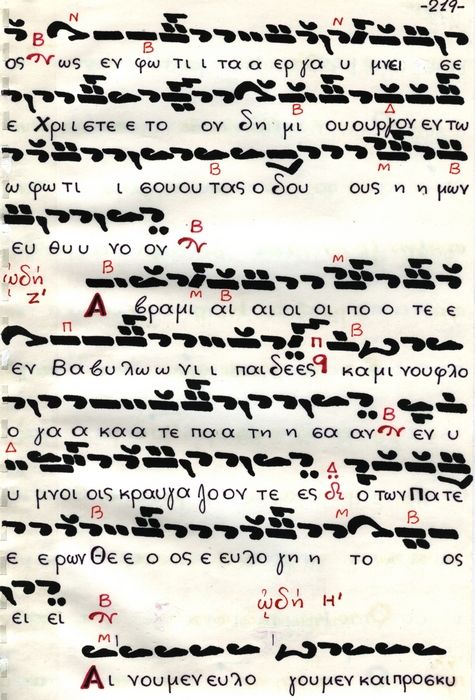 -219-
ος ως εν φω τι ι τα α ερ γα υ μνει σε
ε Χρι ι στε ε το ον δη μι ου ουργον εν τω
ω φω τι ι σου ου τας ο δου ους η η μων
ευ θυ υ νο ον
ᾠδή Ζ'
Α βρα μι αι αι οι οι πο ο τε ε
εν Βα βυ λω ω νι ι παι δε ες κα μι νου φλο
ο γα α κα α τε πα α τη η σα αν εν υ
υ μνοι οις κραυγα ζο ον τε ες ο των Πα τε
ε ε ρων Θε ε ο ος ε ευ λο γη η το ος
ει εί ᾠδή Η'
Αι νου μεν ευ λο γου μεν και προσκυ